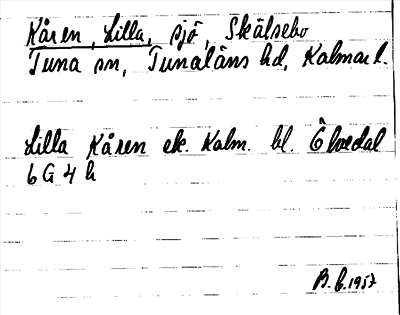 Kåren, Lilla, sjö, Skälsebo
Tuna sn, Tunaläns hd, Kalmar l.
Lilla Kåren ek. Kalm. bl. Ölvedal
6 G 4 h
B. b. 1957